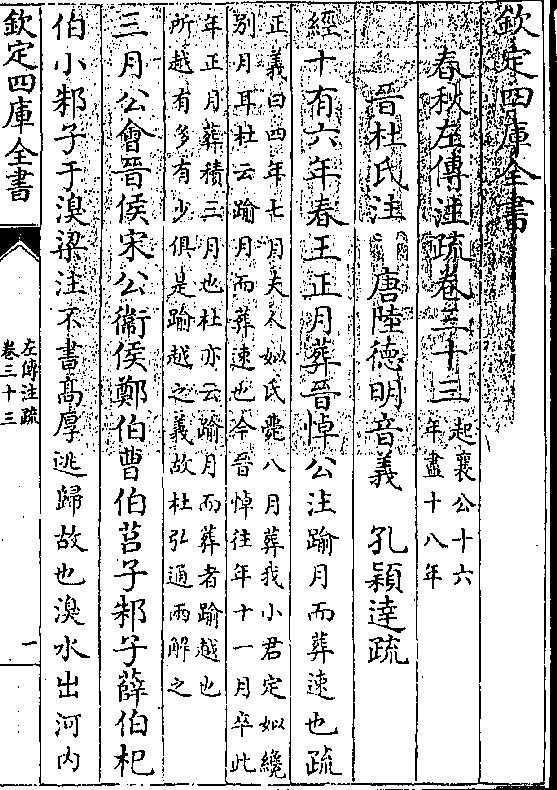 欽定四庫全書
春秋左傳注疏卷三十三 起襄公十六
年盡十八年
晉杜氏注 唐陸德明音義 孔穎達疏
經十有六年春王正月葬晉悼公注踰月而葬速也疏
正義曰四年七月夫人姒氏薨八月葬我小君定姒纔
别月耳杜云踰月而葬速也今晉悼往年十一月卒此
年正月葬積三月也杜亦云踰月而葬者踰越也
所越有多有少俱是踰越之義故杜弘通兩解之
三月公會晉侯宋公衞侯鄭伯曹伯莒子邾子薛伯杞
伯小邾子于湨梁注不書髙厚逃歸故也湨水出河内
欽定四庫全書
左傳注疏
卷三十三
一